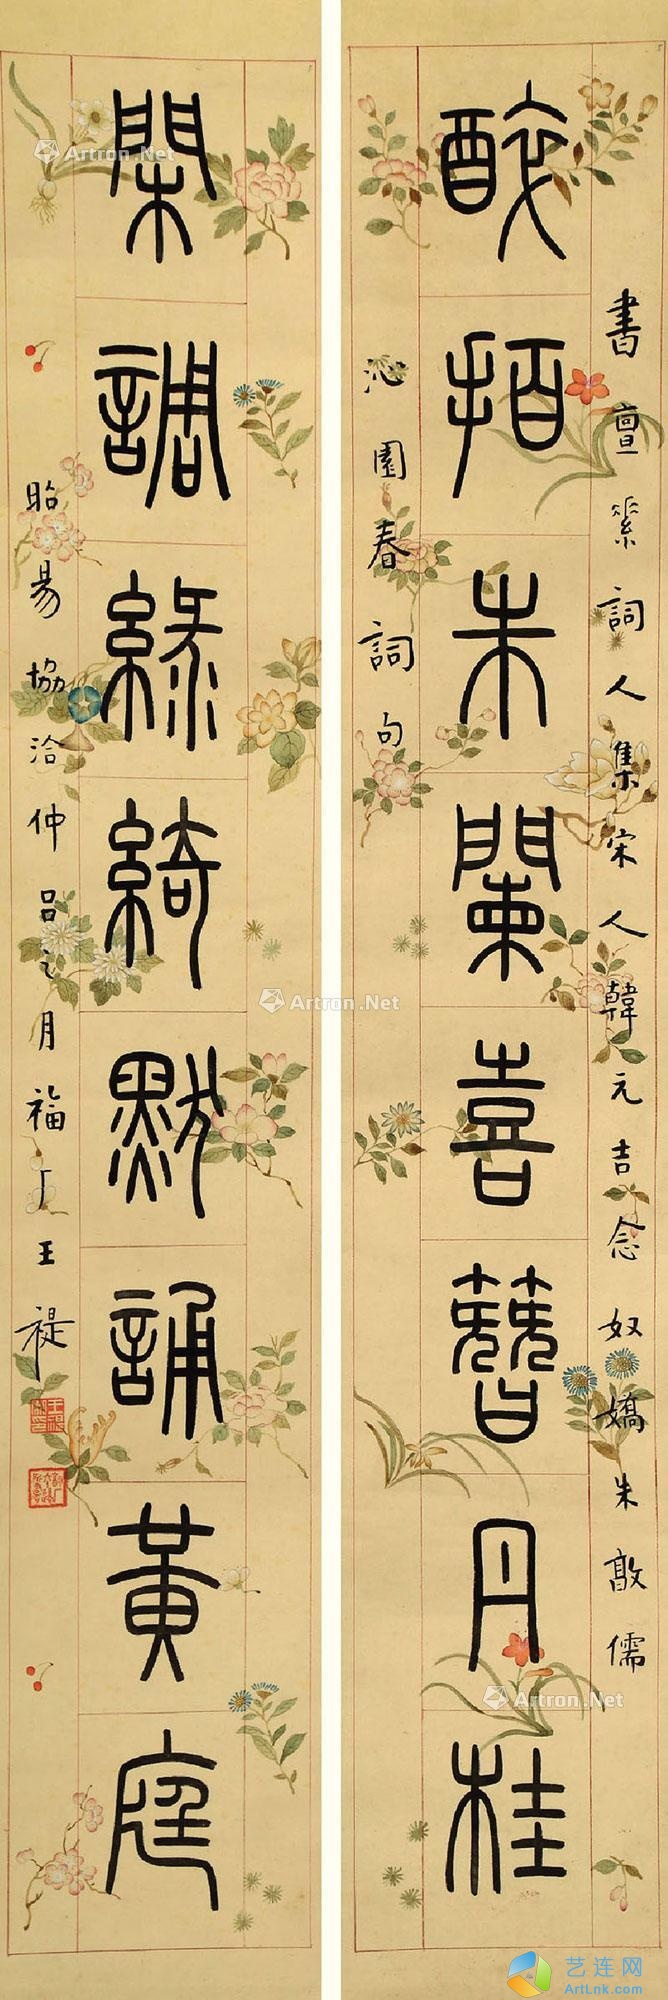 書亶素詞人集宋人韓元吉念奴嬌朱敦儒
醉拍朱闌喜簪丹桂
沁園春詞句
閑調綠綺默誦黃庭
昭昜協洽仲呂之月福厂王禔
Artron.Net
Artron.Net
Artron.Net
Artron.Net
艺连网
ArtLnk.com